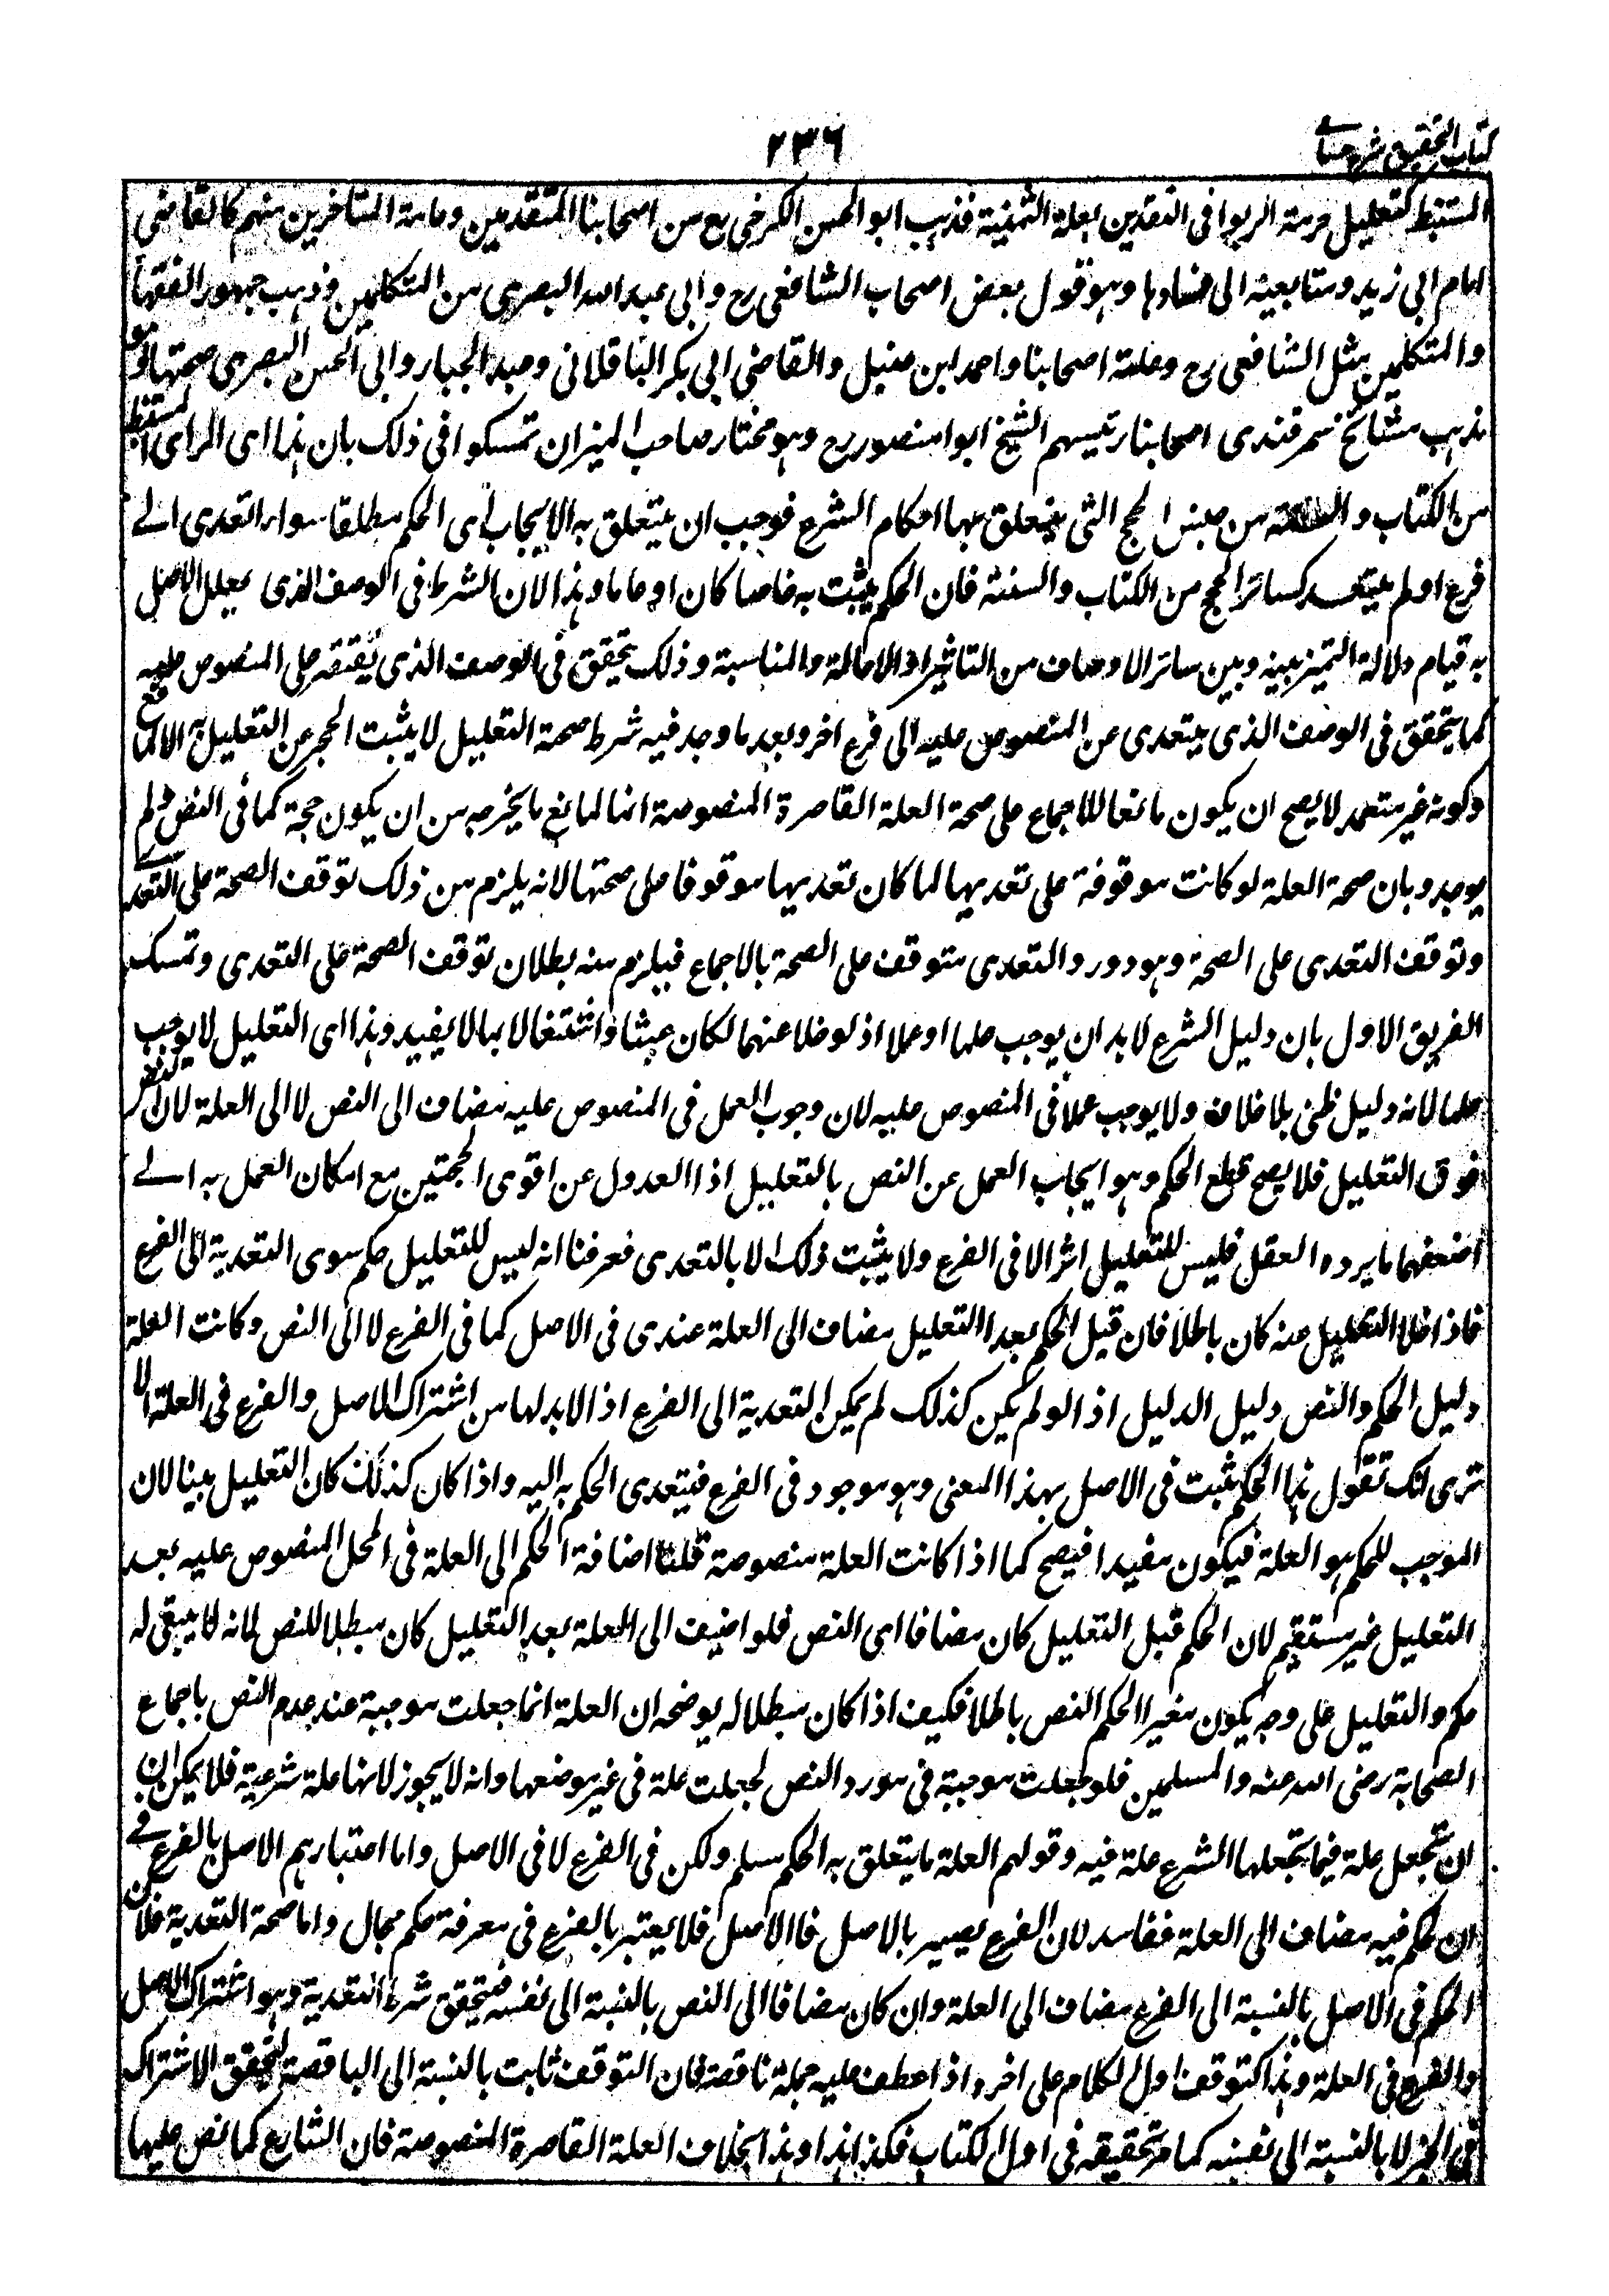 كتاب التحقيق شرح حسامى
٢٣٦
المستنبط كتعليل حرمة الربوا فى النقدين بعلة الثمنية فذهب ابو الحسن الكرخى رح من اصحابنا المتقدمين وعامة المتاخرين منهم كالقاضى
امام ابى زيد ومتابعيه الى فسادها وهو قول بعض اصحاب الشافعى رح وابى عبد الله البصرى من المتكلمين وذهب جمهور الفقهاء
والمتكلمين مثل الشافعى رح وعامة اصحابنا واحمد ابن حنبل والقاضى ابى بكر الباقلانى وعبد الجبار وابى الحسن البصرى صحتها وهو
مذهب مشائخ سمرقندى اصحابنا رئيسهم الشيخ ابو امنصور رح وهو مختار صاحب الميزان تمسكوا فى ذلك بان هذا اى الراى المستنبط
من الكتاب والسنة من جنس الحجج التى يتعلق بها احكام الشرع فوجب ان يتعلق به الايجاب اى الحكم مطلقا سواء تعدى الى
فرع او لم يتعد كسائر الحجج من الكتاب والسنة فان الحكم يثبت به خاصا كان او عاما وهذا لان الشرط فى الوصف الذى يعلل الاصل
به قيام دلالة التميز بينه وبين سائر الاوصاف من التاثير او الاخالة والمناسبة وذلك يتحقق فى الوصف الذى يقتصر على المنصوص عليه
كما يتحقق فى الوصف الذى يتعدى من المنصوص عليه الى فرع اخر وبعد ما وجد فيه شرط صحة التعليل لا يثبت الحجر عن التعليل به الا لمانع
وكونه غير متعد لا يصح ان يكون مانعا للاجماع على صحة العلة القاصرة المنصوصة انما المانع ما يخرجه من ان يكون حجة كما فى النص ولم
يوجد وبان صحة العلة لو كانت موقوفة على تعديها لما كان تعديها موقوفا على صحتها لانه يلزم من ذلك توقف الصحة على التعدى
وتوقف التعدى على الصحة وهو دور والتعدى متوقف على الصحة بالاجماع فيلزم منه بطلان توقف الصحة على التعدى وتمسك
الفريق الاول بان دليل الشرع لا بد ان يوجب علما او عملا اذ لو خلا عنهما لكان عبثا واشتغالا بما لا يفيد وهذا اى التعليل لا يوجب
علما لانه دليل ظنى بلا خلاف ولا يوجب عملا فى المنصوص عليه لان وجوب العمل فى المنصوص عليه مضاف الى النص لا الى العلة لان النص
فوق التعليل فلا يصح قطع الحكم وهو ايجاب العمل عن النص بالتعليل اذ العدول عن اقوى الحجتين مع امكان العمل به الى
اضعفهما ما يرده العقل فليس للتعليل اثر الا فى الفرع ولا يثبت ذلك الا بالتعدى فعرفنا انه ليس للتعليل حكم سوى التعدية الى الفرع
فاذا خلا التعليل منه كان باطلا فان قيل الحكم بعد التعليل مضاف الى العلة عندى فى الاصل كما فى الفرع لا الى النص وكانت العلة
دليل الحكم والنص دليل الدليل اذ لو لم يكن كذلك لم يمكن التعدية الى الفرع اذ لا بد لها من اشتراك الاصل والفرع فى العلة الا
ترى انك تقول هذا الحكم ثبت فى الاصل بهذا المعنى وهو موجود فى الفرع فيتعدى الحكم به اليه واذا كان كذلك كان التعليل بينا لان
الموجب للحكم هو العلة فيكون مفيدا فيصح كما اذا كانت العلة منصوصة قلنا اضافة الحكم الى العلة فى المحل المنصوص عليه بعد
التعليل غير مستقيم لان الحكم قبل التعليل كان مضافا اى النص فلو اضيف الى العلة بعد التعليل كان مبطلا للنص لانه لا يبقى له
حكم والتعليل على وجه يكون مغيرا لحكم النص باطلا فكيف اذا كان مبطلا له يوضحه ان العلة انما جعلت موجبة عند عدم النص باجماع
الصحابة رضى الله عنه والمسلمين فلو جعلت موجبة فى مورد النص لجعلت علة فى غير موضعها وانه لا يجوز لانها علة شرعية فلا يمكن ان
ان تجعل علة فيما يجعلها الشرع علة فيه وقولهم العلة ما يتعلق به الحكم مسلم ولكن فى الفرع لا فى الاصل واما اعتبارهم الاصل بالفرع فى
ان حكم فيه مضاف الى العلة ففاسد لان الفرع يصير بالاصل فاما الاصل فلا يعتبر بالفرع فى معرفة حكم بحال واما صحة التعدية فلان
الحكم فى الاصل بالنسبة الى الفرع مضاف الى العلة وان كان مضافا الى النص بالنسبة الى نفسه فيتحقق شرط التعدية وهو اشتراك الاصل
والفرع فى العلة وهذا كتوقف اول الكلام على اخره اذا عطف عليه جملة ناقصة فان التوقف ثابت بالنسبة الى الناقصة لتحقق الاشتراك
فى الخبر لا بالنسبة الى نفسه كما مر تحقيقه فى اول الكتاب فكذا هذا وهذا بخلاف العلة القاصرة المنصوصة فان الشارع كما نص عليها